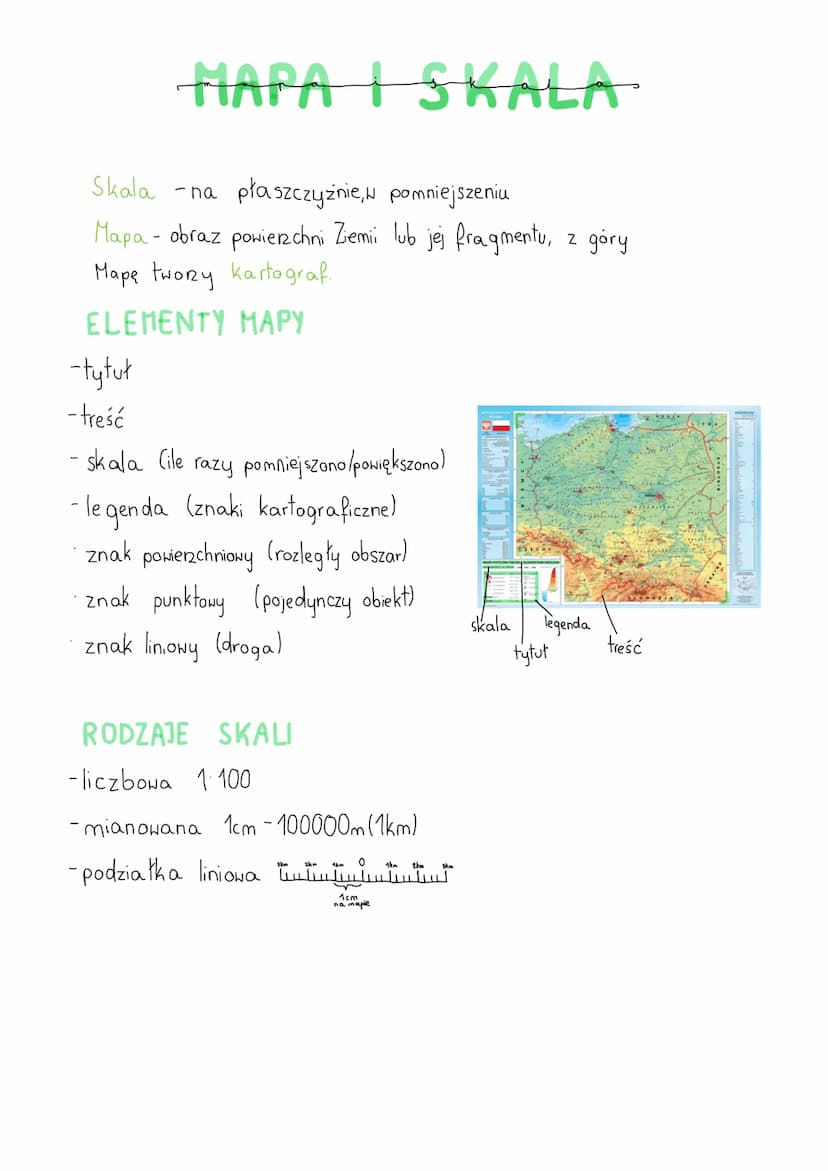 MAPA I SKALA
mapa i skala
Skala - na płaszczyźnie, w pomniejszeniu
Mapa - obraz powierzchni Ziemii lub jej fragmentu, z góry
Mapę tworzy kartograf.
ELEMENTY MAPY
-tytuł
-treść
- skala (ile razy pomniejszono/powiększono)
- legenda (znaki kartograficzne)
· znak powierzchniowy (rozległy obszar)
· znak punktowy (pojedynczy obiekt)
· znak liniowy (droga)
skala
legenda
tytuł
treść
RODZAJE SKALI
-liczbowa 1:100
-mianowana 1cm - 100000m (1km)
-podziałka liniowa 3km 2km 1km 0 1km 2km 3km
1cm
na mapie